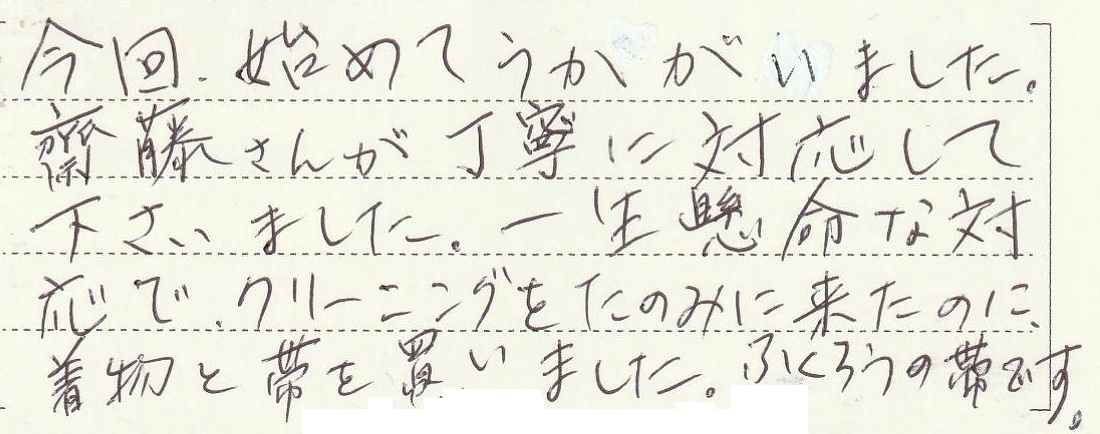 今回、始めてうかがいました。
齋藤さんが丁寧に対応して
下さいました。一生懸命な対
応で、クリーニングをたのみに来たのに、
着物と帯を買いました。ふくろうの帯です。